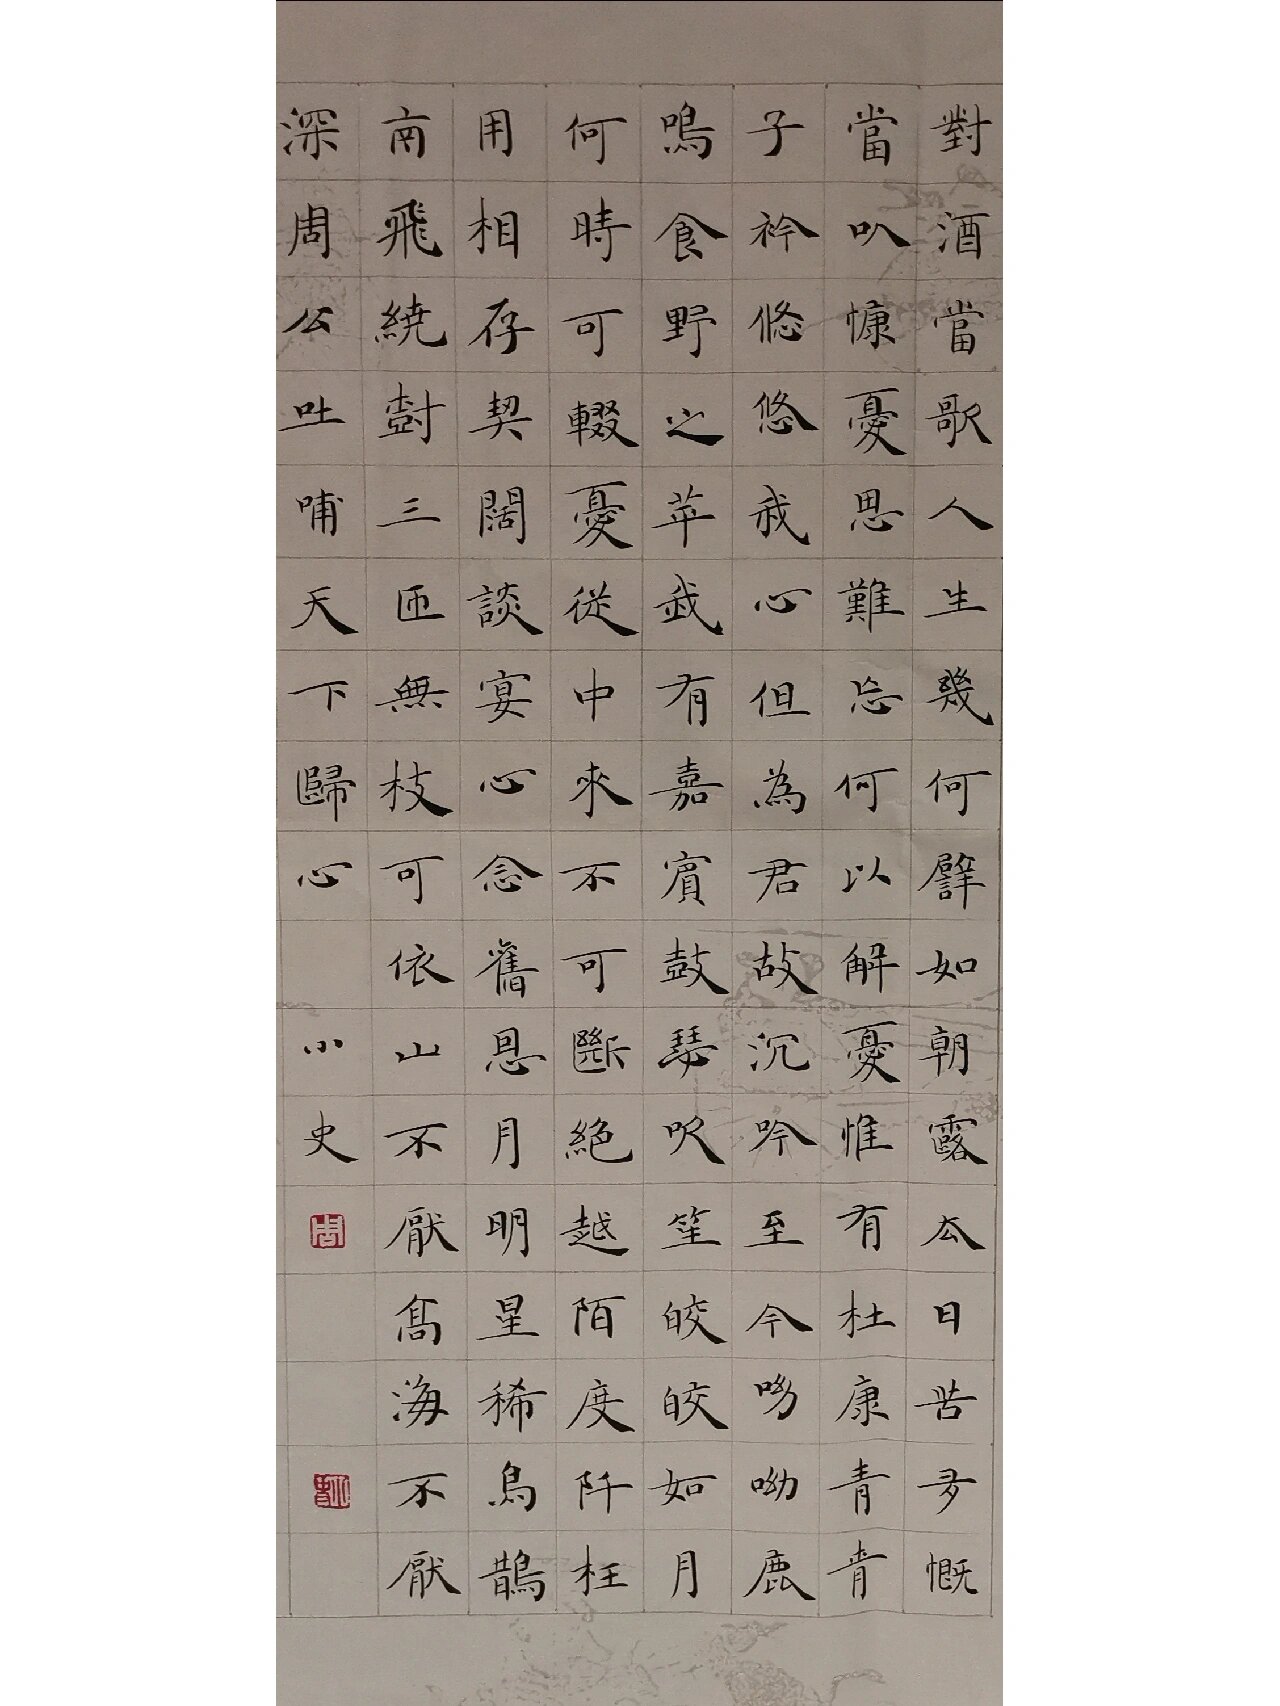 對酒當歌人生幾何譬如朝露去日苦多慨
當㕥慷憂思難忘何以解憂惟有杜康青青
子衿悠悠我心但為君故沉吟至今呦呦鹿
鳴食野之苹我有嘉賓鼓瑟吹笙皎皎如月
何時可輟憂從中來不可斷絕越陌度阡枉
用相存契闊談宴心念舊恩月明星稀烏鵲
南飛繞尌三匝無枝可依山不厭高海不厭
深周公吐哺天下歸心 小史
周